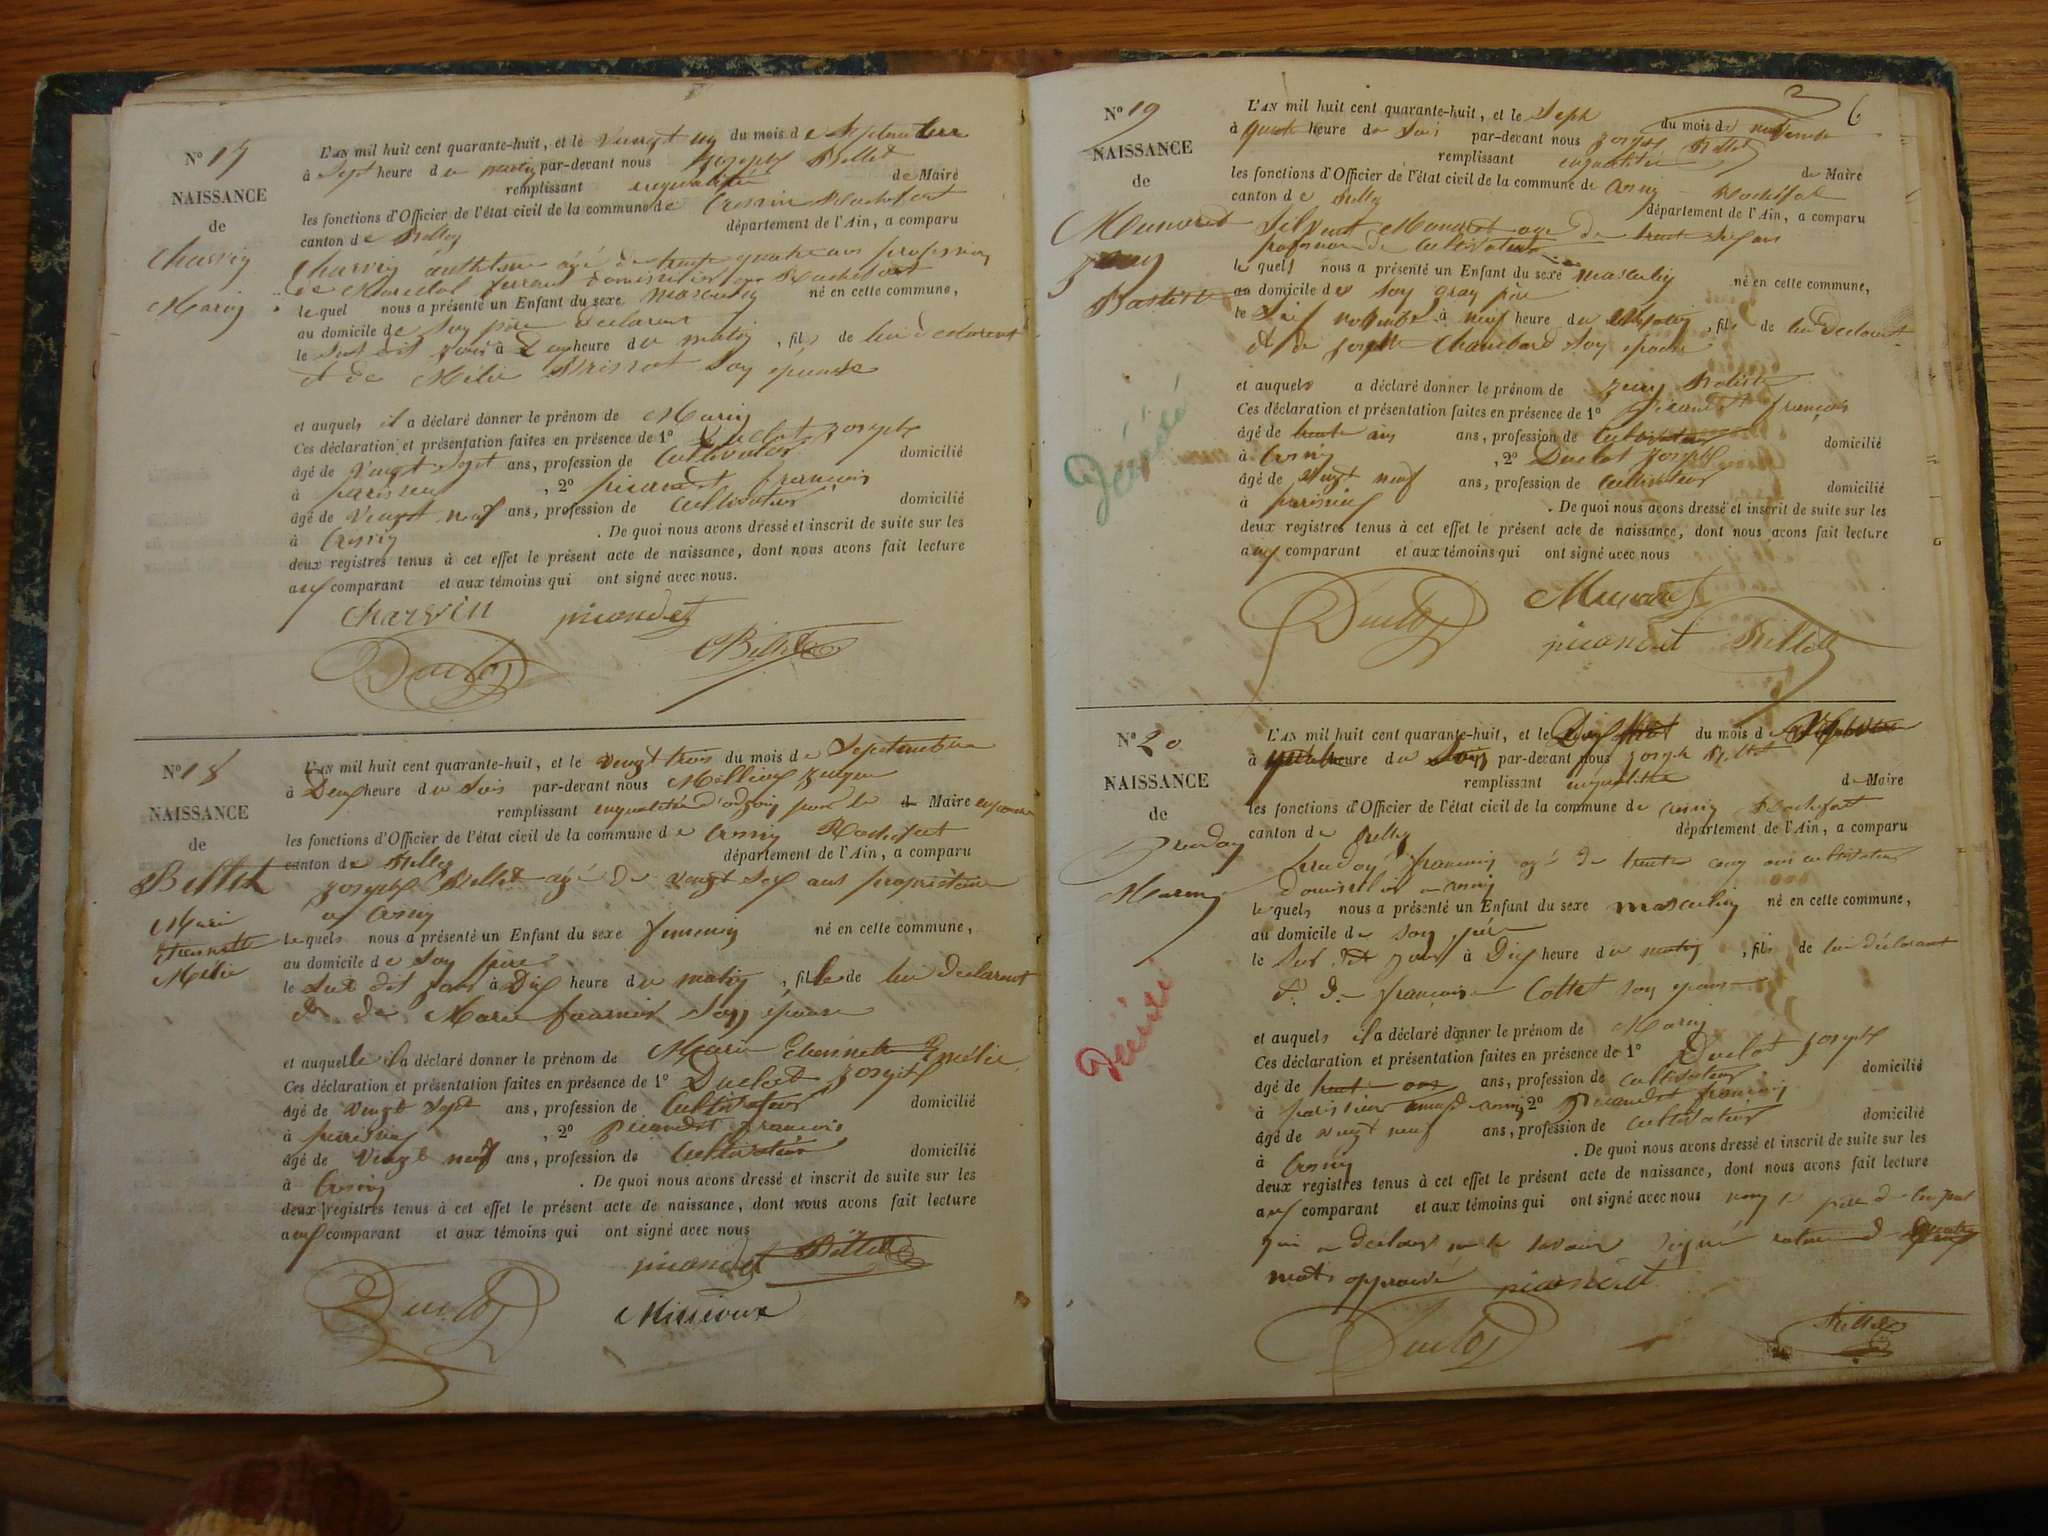 N° 17
NAISSANCE
de
Charvin
Marin
L'AN mil huit cent quarante-huit, et le vingt un du mois de Septembre
à Sept heure du matin par-devant nous Joseph Billet
remplissant enqualité de Maire
les fonctions d'Officier de l'état civil de la commune de Cressin Rochefort
canton de Belley département de l'Ain, a comparu
Charvin âgé de trente quatre ans profession
de Marechal ferrant domicilier a Rochefort
le quel nous a présenté un Enfant du sexe masculin né en cette commune,
au domicile de Son père declarent
le Sus dit jour à Deux heure du matin, fils de lui declarent
et de Mélie Son épouse
et auquel il a déclaré donner le prénom de Marin
Ces déclaration et présentation faites en présence de 1° Duclot Joseph
âgé de Vingt Sept ans, profession de Cultivateur domicilié
à parissieu, 2° picandet françois
âgé de Vingt neuf ans, profession de Cultivateur domicilié
à Cressin. De quoi nous avons dressé et inscrit de suite sur les
deux registres tenus à cet effet le présent acte de naissance, dont nous avons fait lecture
aux comparant et aux témoins qui ont signé avec nous.
Charvin picandet
Duclos Billet
N° 18
NAISSANCE
de
Billet
Marie
Etiennette
Mélie
L'AN mil huit cent quarante-huit, et le vingt trois du mois de Septembre
à Deux heure du Soir par-devant nous
remplissant enqualité d'adjoin pour le Maire
les fonctions d'Officier de l'état civil de la commune de Cressin Rochefort
canton de Belley département de l'Ain, a comparu
Joseph Billet agé de vingt Sept ans propriétaire
a Cressin
le quel nous a présenté un Enfant du sexe feminin né en cette commune,
au domicile de Son père
le Sus dit jour à Dix heure du matin, fille de lui declarent
et de Marie fournier Son épouse
et auquelle il a déclaré donner le prénom de Marie Etiennette Emélie
Ces déclaration et présentation faites en présence de 1° Duclot Joseph
âgé de vingt Sept ans, profession de Cultivateur domicilié
à parissieu, 2° picandet françois
âgé de vingt neuf ans, profession de Cultivateur domicilié
à Cressin. De quoi nous avons dressé et inscrit de suite sur les
deux registres tenus à cet effet le présent acte de naissance, dont nous avons fait lecture
aux comparant et aux témoins qui ont signé avec nous
picandet Billet
Duclos
6
N° 19
NAISSANCE
de
Munaret
Jean
Batiste
L'AN mil huit cent quarante-huit, et le Sept du mois de novembre
à quatre heure du Soir par-devant nous Joseph Billet
remplissant enqualité de Maire
les fonctions d'Officier de l'état civil de la commune de Cressin Rochefort
canton de Belley département de l'Ain, a comparu
Munaret age de trente ans
profession de Cultivateur
le quel nous a présenté un Enfant du sexe masculin né en cette commune,
au domicile de son gran père
le novembre à neuf heure du, fils de lui declarent
et de Josephte Chambard Son épouse
et auquel a déclaré donner le prénom de Jean Batiste
Ces déclaration et présentation faites en présence de 1° Picandet françois
âgé de trente ans ans, profession de Cultivateur domicilié
à Cressin, 2° Duclot Joseph
âgé de vingt neuf ans, profession de Cultivateur domicilié
à parissieu. De quoi nous avons dressé et inscrit de suite sur les
deux registres tenus à cet effet le présent acte de naissance, dont nous avons fait lecture
aux comparant et aux témoins qui ont signé avec nous
Duclos Munaret
picandet Billet
N° 20
NAISSANCE
de
Marin
Décédé
L'AN mil huit cent quarante-huit, et le du mois de
à heure du Soir par-devant nous Joseph Billet
remplissant enqualité de Maire
les fonctions d'Officier de l'état civil de la commune de Cressin Rochefort
canton de Belley département de l'Ain, a comparu
francois agé de trente cinq ans cultivateur
domicilié a Cressin
le quel nous a présenté un Enfant du sexe masculin né en cette commune,
au domicile de son père
le Sus dit jour à Dix heure du matin, fils de lui déclarant
et de françoise Collet son épouse
et auquel il a déclaré donner le prénom de Marin
Ces déclaration et présentation faites en présence de 1° Duclot Joseph
âgé de trente ans ans, profession de cultivateur domicilié
à parissieu 2° Picandet françois
âgé de vingt neuf ans, profession de cultivateur domicilié
à Cressin. De quoi nous avons dressé et inscrit de suite sur les
deux registres tenus à cet effet le présent acte de naissance, dont nous avons fait lecture
aux comparant et aux témoins qui ont signé avec nous non le père de l'enfant
qui a declaré ne le savoir signé
mots approuvé picandet
Duclos Billet